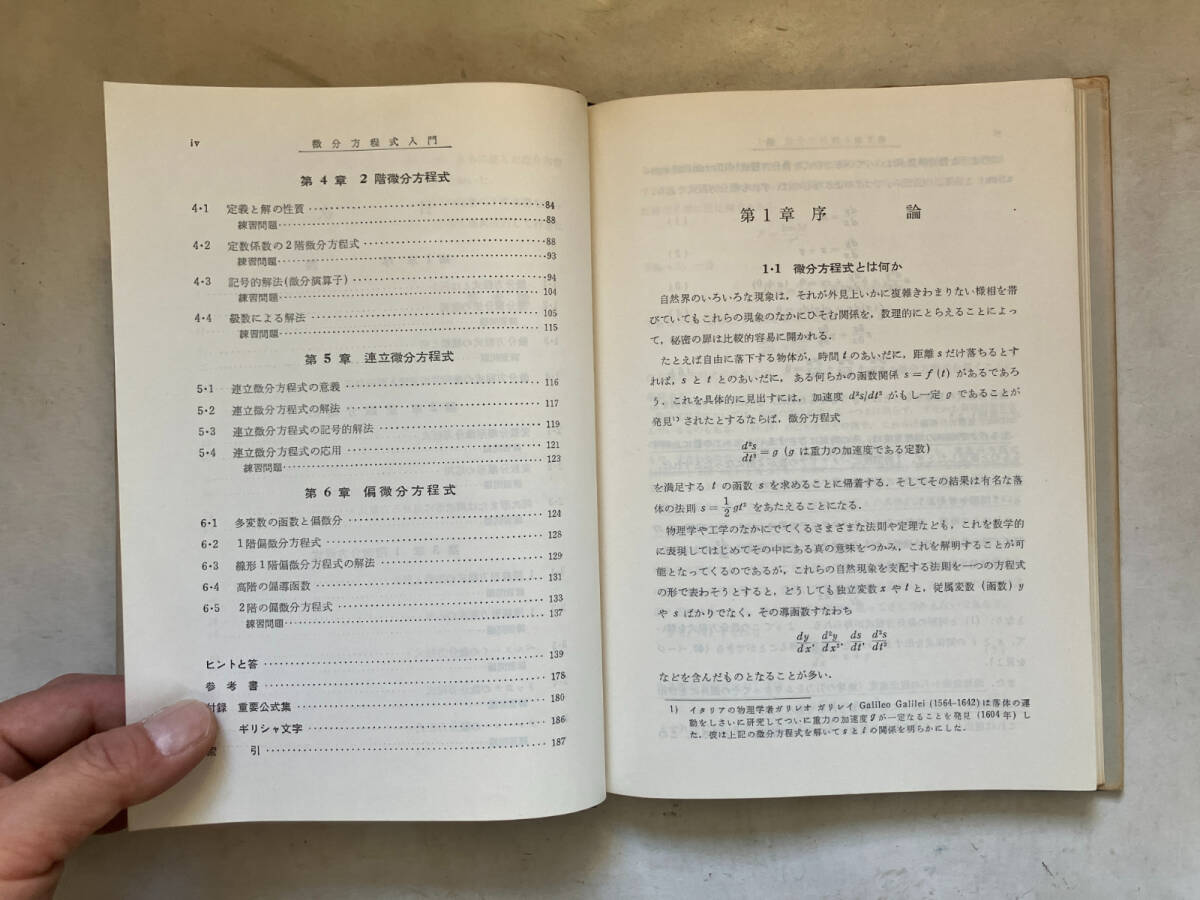 iv
微分方程式入門
第4章 2階微分方程式
4・1 定義と解の性質 84
練習問題 88
4・2 定数係数の2階微分方程式 88
練習問題 93
4・3 記号的解法(微分演算子) 94
練習問題 104
4・4 級数による解法 105
練習問題 115
第5章 連立微分方程式
5・1 連立微分方程式の意義 116
5・2 連立微分方程式の解法 117
5・3 連立微分方程式の記号的解法 119
5・4 連立微分方程式の応用 121
練習問題 123
第6章 偏微分方程式
6・1 多変数の函数と偏微分 124
6・2 1階偏微分方程式 128
6・3 線形1階偏微分方程式の解法 129
6・4 高階の偏導函数 131
6・5 2階の偏微分方程式 133
練習問題 137
ヒントと答 139
参考書 178
付録 重要公式集 180
ギリシャ文字 186
索引 187
第1章 序論
1・1 微分方程式とは何か
自然界のいろいろな現象は,それが外見上いかに複雑きわまりない様相を帯
びていてもこれらの現象のなかにひそむ関係を,数理的にとらえることによっ
て,秘密の扉は比較的容易に開かれる.
たとえば自由に落下する物体が,時間 t のあいだに,距離 s だけ落ちるとす
れば, s と t とのあいだに, ある何らかの函数関係 s=f(t) があるであろ
う.これを具体的に見出すには, 加速度 d²s/dt² がもし一定 g であることが
発見¹⁾されたとするならば,微分方程式
d²s/dt²=g (g は重力の加速度である定数)
を満足する t の函数 s を求めることに帰着する.そしてその結果は有名な落
体の法則 s=1/2gt² をあたえることになる.
物理学や工学のなかにでてくるさまざまな法則や定理なども,これを数学的
に表現してはじめてその中にある真の意味をつかみ,これを解明することが可
能となってくるのであるが,これらの自然現象を支配する法則を一つの方程式
の形で表わそうとすると,どうしても独立変数 x や t と,従属変数(函数) y
や s ばかりでなく,その導函数すなわち
dy/dx, d²y/dx², ds/dt, d²s/dt²
などを含んだものとなることが多い.
1) イタリアの物理学者ガリレオ ガリレイ Galileo Galilei (1564-1642)は落体の運
動をしさいに研究してついに重力の加速度 g が一定なることを発見(1604年)し
た.彼は上記の微分方程式を解いて s と t の関係を明らかにした.